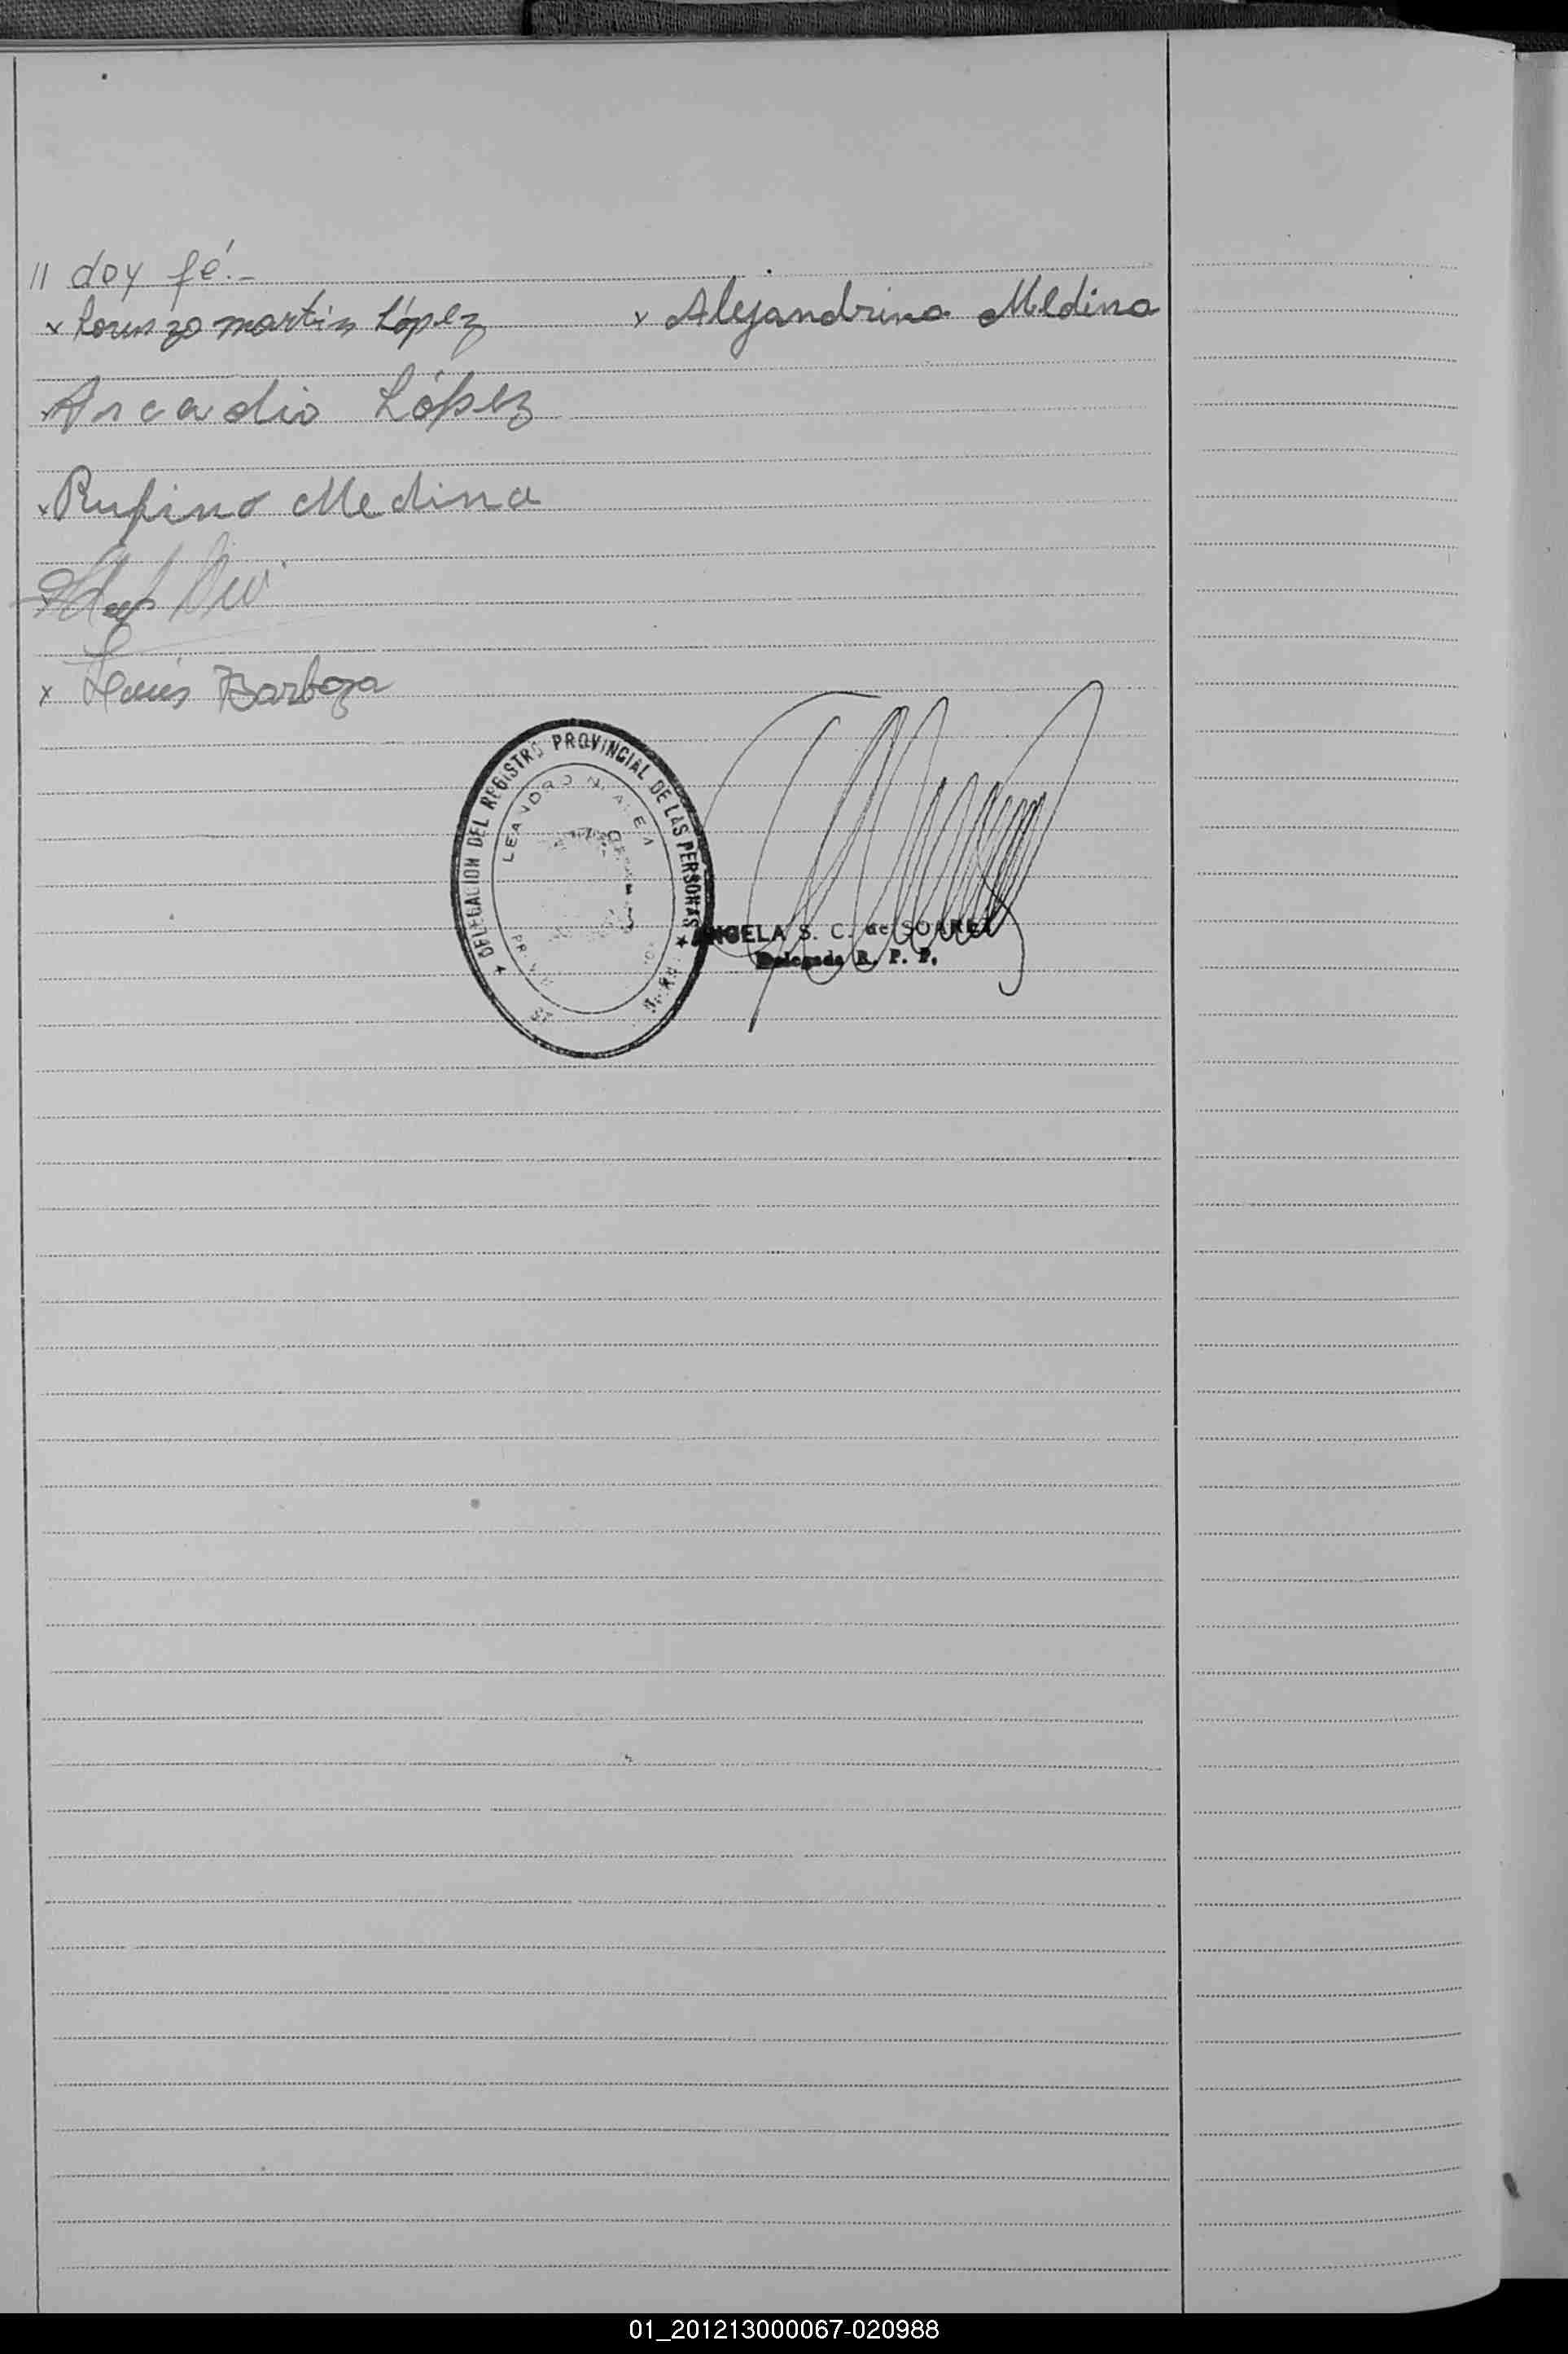 // doy fé.-
x Lorenzo martin López x Alejandrina Medina
x Arcadio López
x Rufino Medina
x Luis Barboza
★ DELEGACION DEL REGISTRO PROVINCIAL DE LAS PERSONAS ★
LEANDRO N. ALEM
ANGELA S. C. de SOAREZ
Delegada R. P. P.
01_201213000067-020988